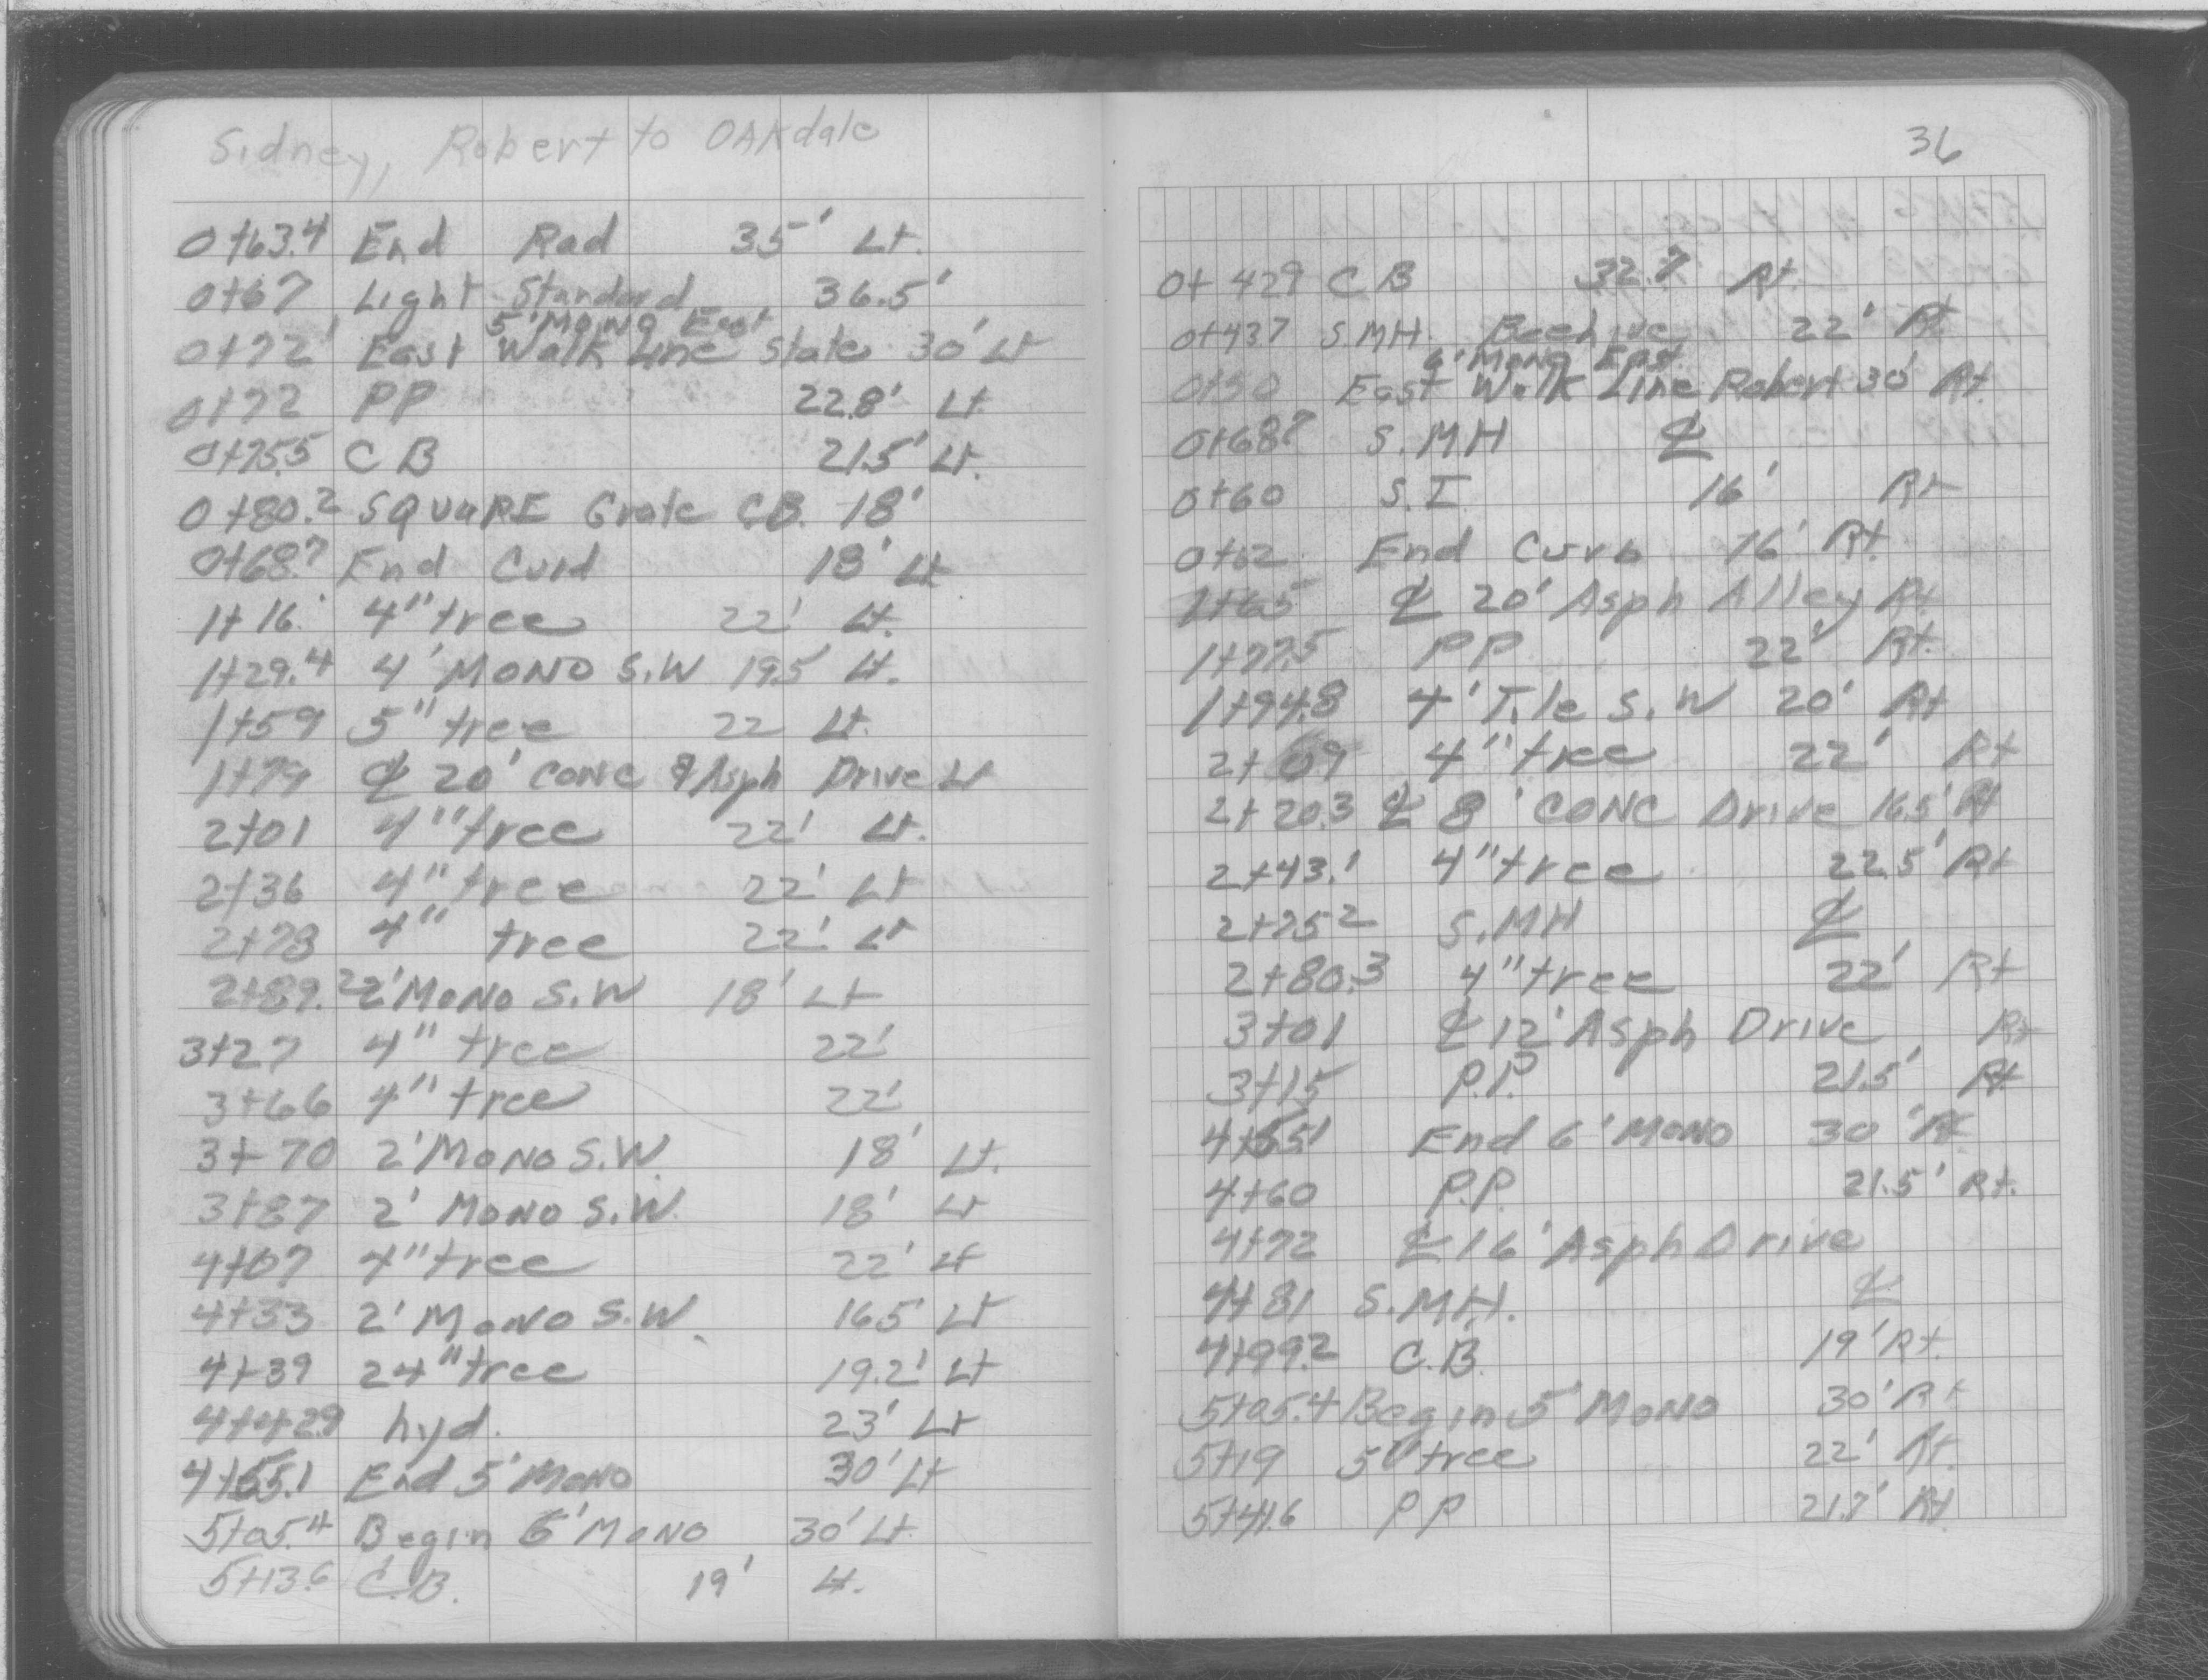 Sidney, Robert to OAKdale
0+63.4 End Rad 35' Lt.
0+67 Light Standard 36.5'
5' Mono East
0+72' East Walk Line State 30' Lt
0+72 PP 22.8' Lt
0+75.5 C B 21.5' Lt.
0+80.2 SQUARE Grate C.B. 18'
0+68.7 End Curd 18' Lt
1+16. 4" tree 22' Lt.
1+29.4 4' MONO S.W 19.5 Lt.
1+59 5" tree 22 Lt.
1+79 ℄ 20' CONC & Asph Drive Lt
2+01 4" tree 22' Lt.
2+36 4" tree 22' Lt
2+78 4" tree 22' Lt
2+89.2 2' MONO S.W 18' Lt
3+27 4" tree 22'
3+66 4" tree 22'
3+70 2' MONO S.W. 18' Lt.
3+87 2' MONO S.W. 18' Lt
4+07 4" tree 22' Lt
4+33 2' MONO S.W. 16.5' Lt
4+39 24" tree 19.2' Lt
4+42.9 hyd. 23' Lt
4+55.1 End 5' MONO 30' Lt
5+05.4 Begin 6' MONO 30' Lt.
5+13.6 C.B. 19' Lt.
36
0+429 C B 32.7 Rt.
0+437 S.MH. Beehive 22' Rt
6' Mono East
0+50 East Walk Line Robert 30' Rt.
0+687 S.MH ℄
0+60 S.I 16' Rt
0+62 End Curb 16' Rt.
1+65 ℄ 20' Asph Alley Rt
1+77.5 PP 22' Rt.
1+94.8 4' Tile S.W 20' Rt
2+09 4" tree 22' Rt
2+20.3 ℄ 8' CONC Drive 16.5' Rt
2+43.1 4" tree 22.5' Rt
2+75.2 S.MH ℄
2+80.3 4" tree 22' Rt
3+01 ℄ 12' Asph Drive Rt
3+15 P.P. 21.5' Rt
4+551 End 6' MONO 30' Rt
4+60 P.P. 21.5' Rt.
4+72 ℄ 16' Asph Drive
4+81 S.MH. ℄
4+99.2 C.B. 19' Rt.
5+05.4 Begin 5' MONO 30' Rt
5+19 5" tree 22' Rt.
5+41.6 PP 21.7' Rt